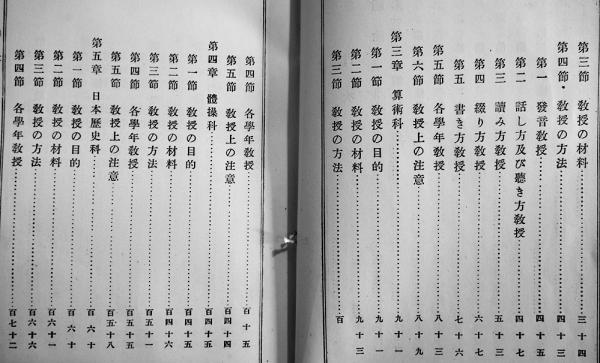 第三節 敎授の材料……三十四
第四節 敎授の方法……四十三
第一 發音敎授……四十五
第二 話し方及び聽き方敎授……四十七
第三 讀み方敎授……五十三
第四 綴り方敎授……六十七
第五 書き方敎授……七十六
第五節 各學年敎授……八十三
第六節 敎授上の注意……八十九
第三章 算術科……九十一
第一節 敎授の目的……九十一
第二節 敎授の材料……九十三
第三節 敎授の方法……百
第四節 各學年敎授……百十五
第五節 敎授上の注意……百四十四
第四章 體操科……百四十五
第一節 敎授の目的……百四十五
第二節 敎授の材料……百四十六
第三節 敎授の方法……百五十一
第四節 各學年敎授……百五十五
第五節 敎授上の注意……百五十八
第五章 日本歷史科……百六十
第一節 敎授の目的……百六十
第二節 敎授の材料……百六十一
第三節 敎授の方法……百六十六
第四節 各學年敎授……百七十二